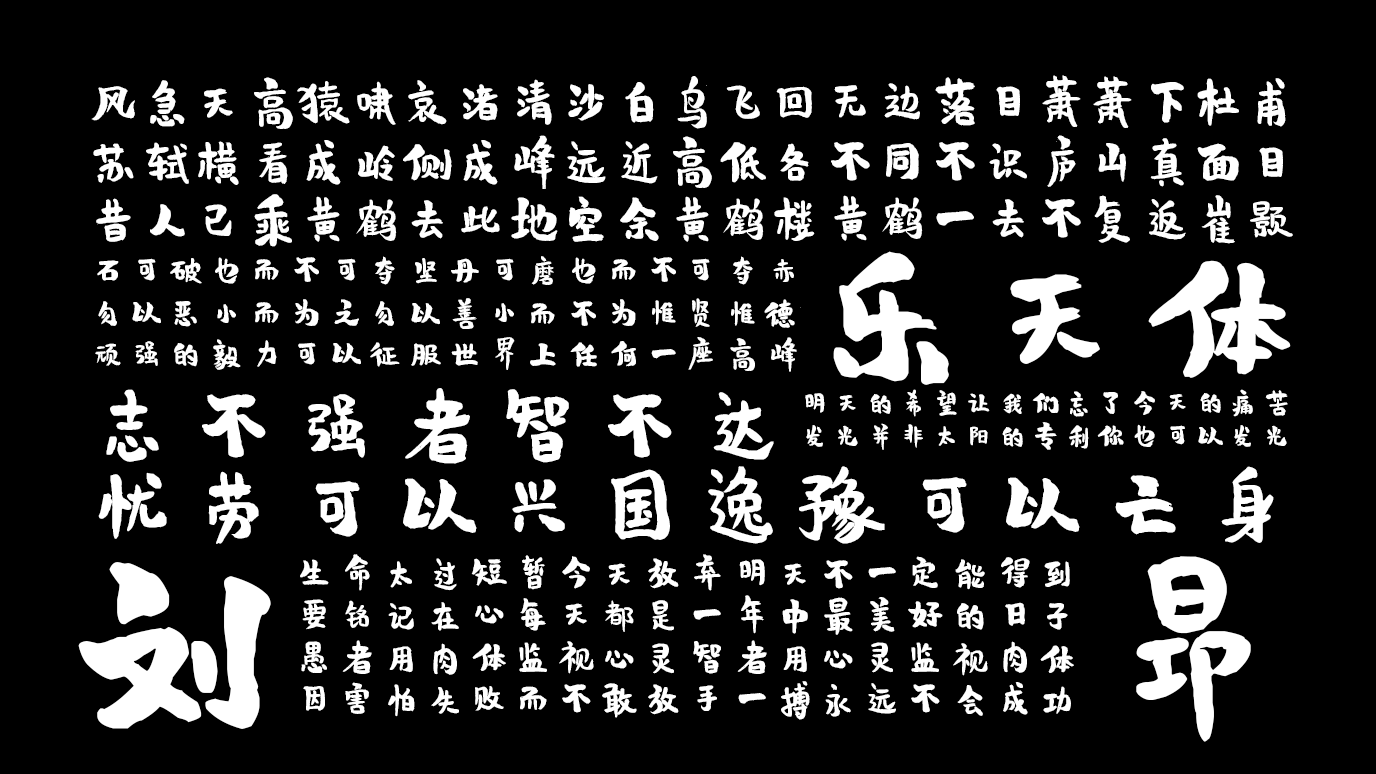 风急天高猿啸哀渚清沙白鸟飞回无边落目萧萧下杜甫
苏轼横看成岭侧成峰远近高低各不同不识庐山真面目
昔人已乘黄鹤去此地空余黄鹤楼黄鹤一去不复返崔颢
石可破也而不可夺坚丹可磨也而不可夺赤
勿以恶小而为之勿以善小而不为惟贤惟德
顽强的毅力可以征服世界上任何一座高峰
乐天体
志不强者智不达
明天的希望让我们忘了今天的痛苦
发光并非太阳的专利你也可以发光
忧劳可以兴国逸豫可以亡身
刘
生命太过短暂今天放弃明天不一定能得到
要铭记在心每天都是一年中最美好的日子
愚者用肉体监视心灵智者用心灵监视肉体
因害怕失败而不敢放手一搏永远不会成功
昂